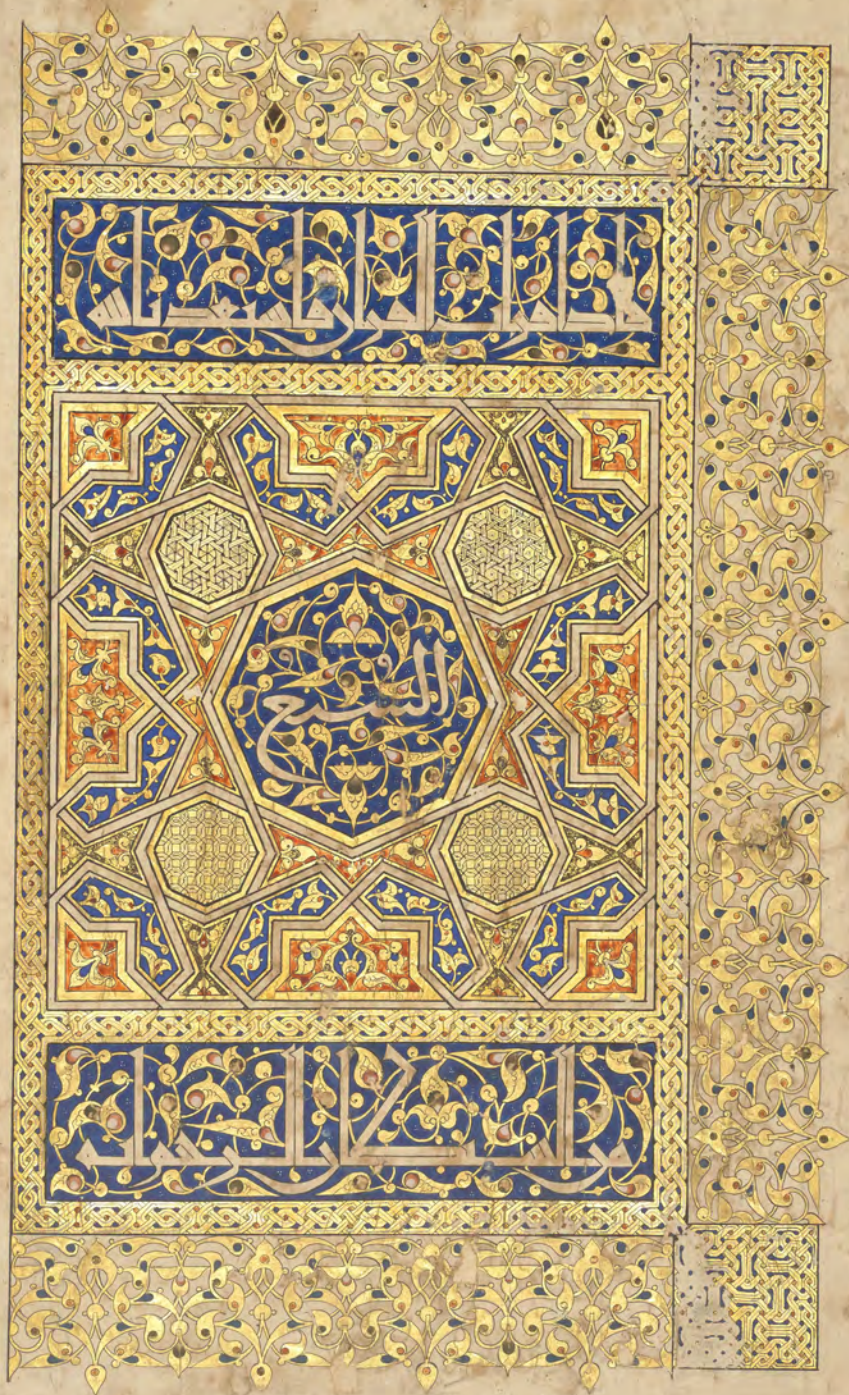 فاذا قرات القران فاستعذ بالله
السبع
من الشيطان الرجيم انه